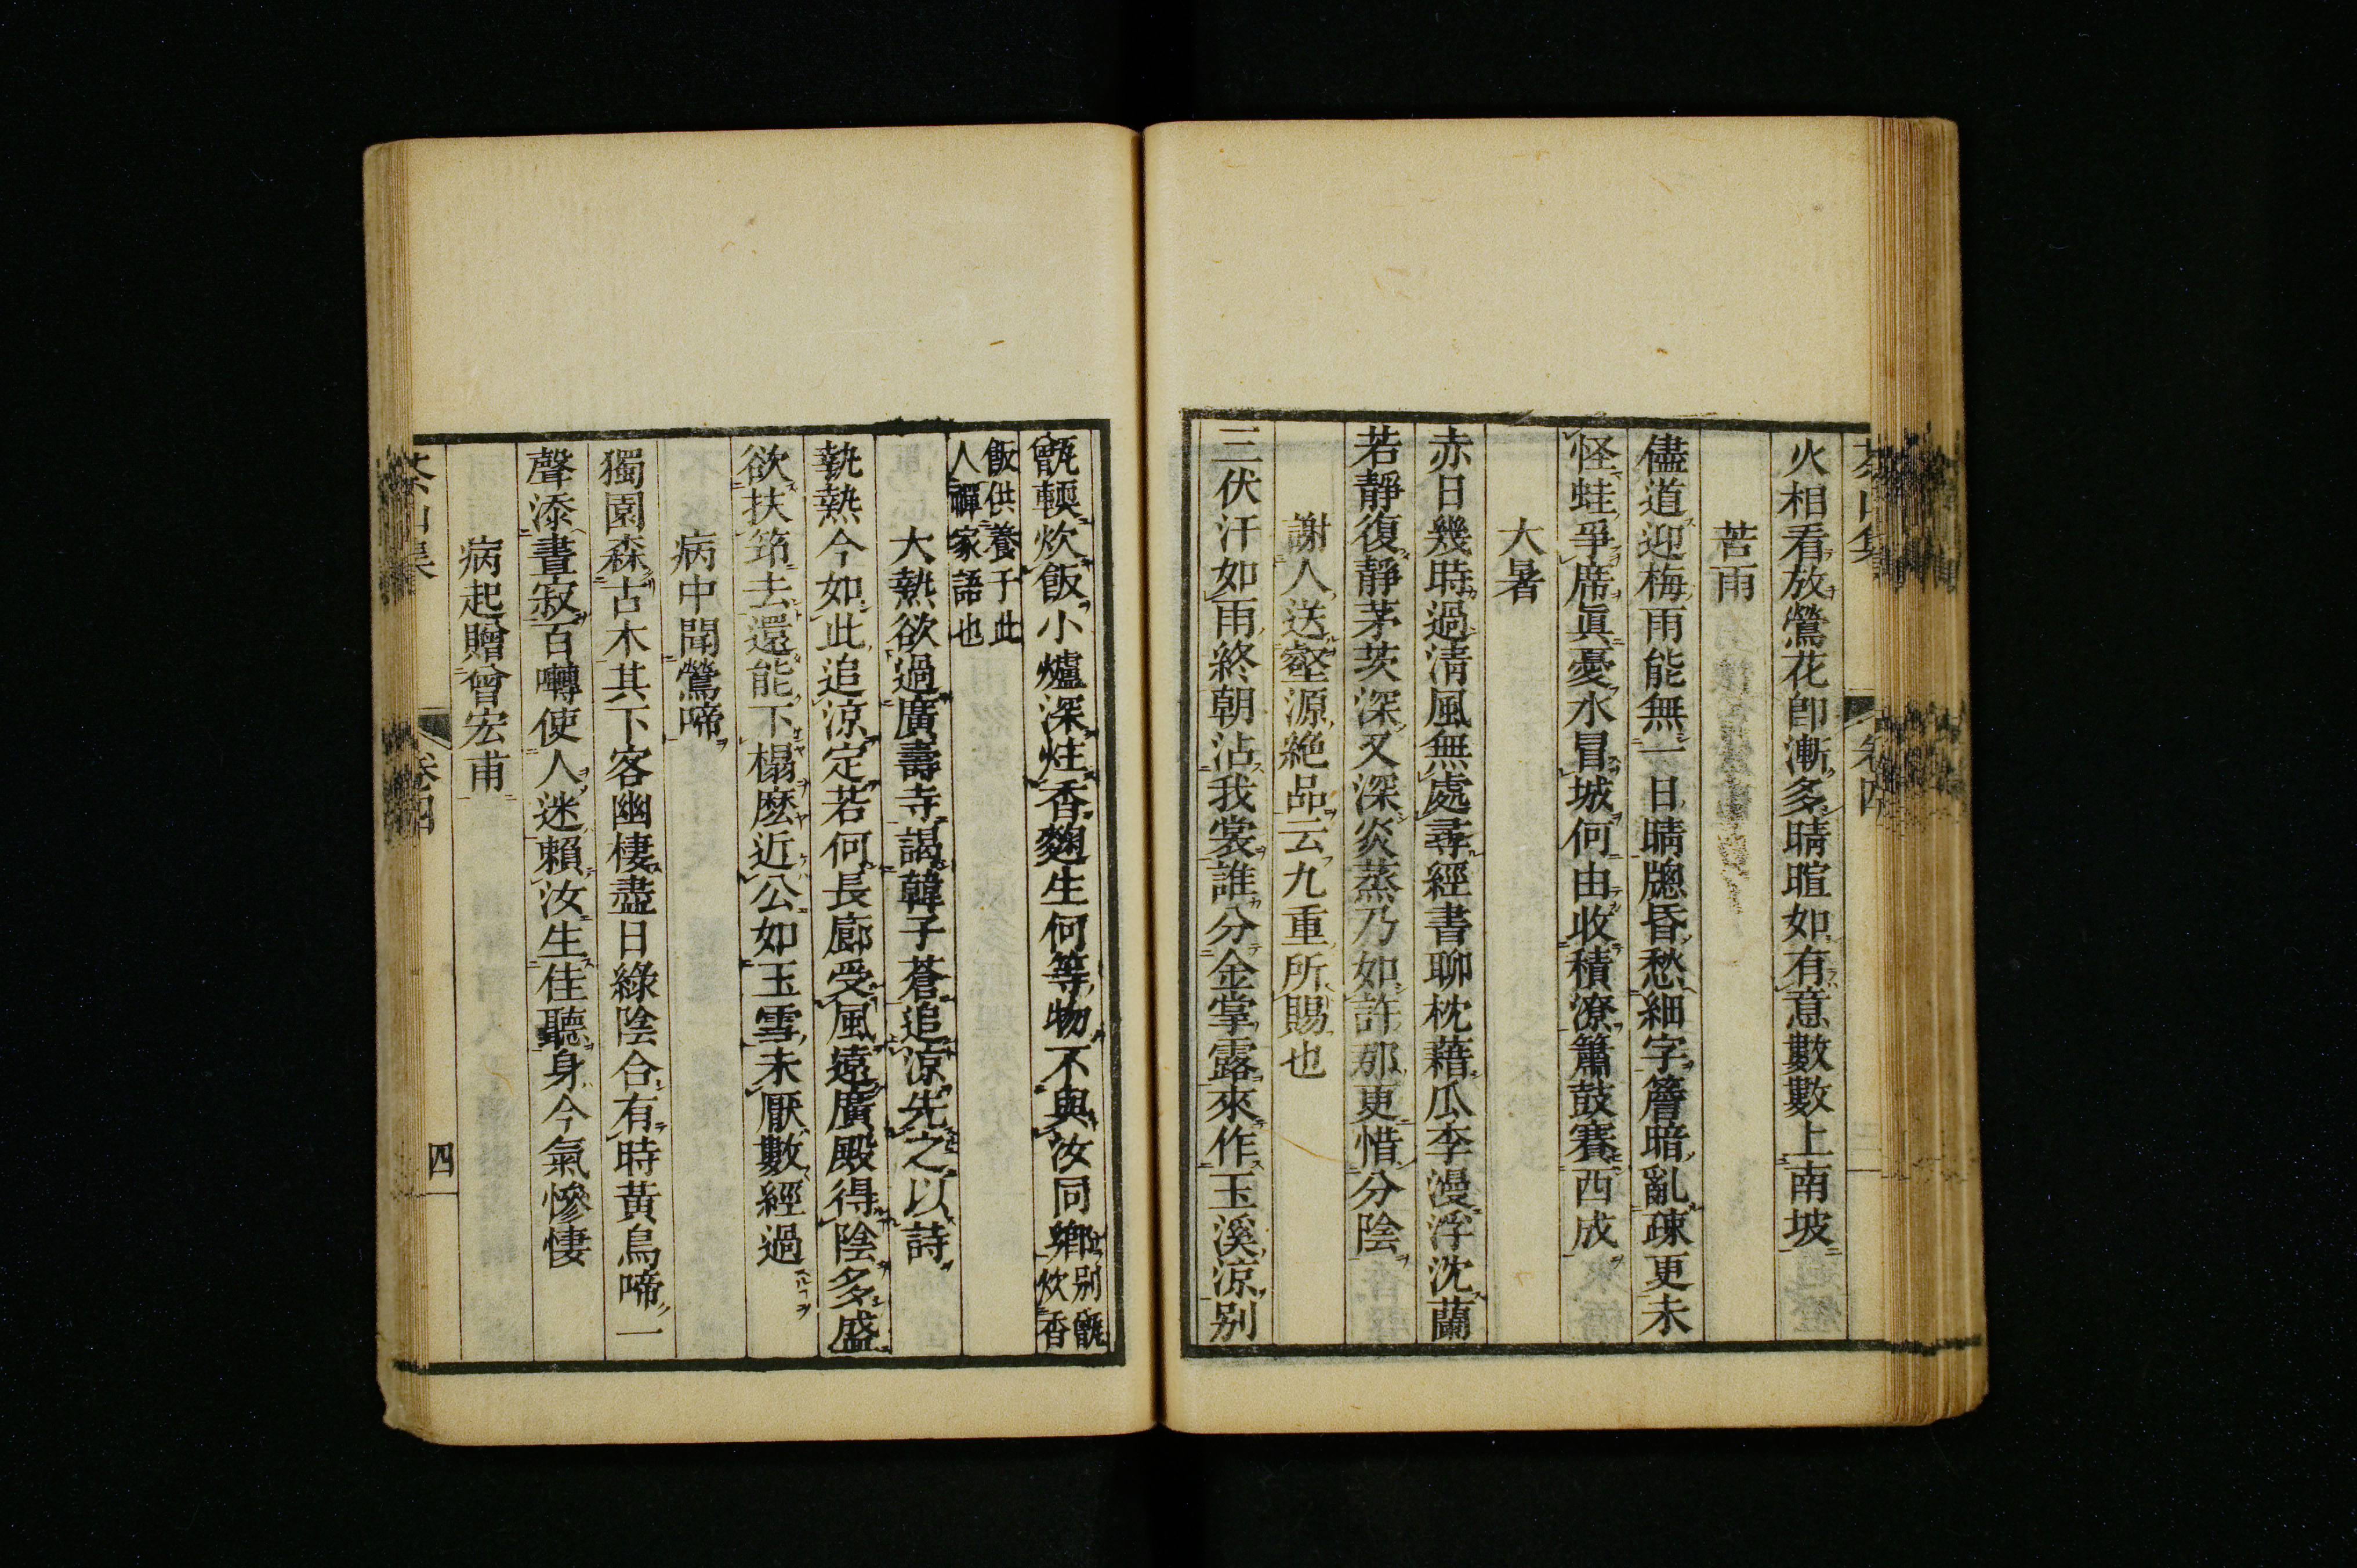 火相看放鶯花卽漸多晴暄如有意數數上南坡
苦雨
儘道迎梅雨能無一日晴牕昏愁細字簷暗亂疎更未
怪蛙爭席眞憂水冒城何由收積潦簫鼓賽西成
大暑
赤日幾時過淸風無處尋經書聊枕藉瓜李漫浮沈蘭
若靜復靜茅茨深又深炎蒸乃如許那更惜分陰
謝人送壑源絶品云九重所賜也
三伏汗如雨終朝沾我裳誰分金掌露來作玉溪涼別
甑軟炊飯小爐深炷香麴生何等物不與汝同鄉別甑
炊香
飯供養于此
人禪家語也
大熱欲過廣壽寺謁韓子蒼追涼先之以詩
執熱今如此追涼定若何長廊受風遠廣殿得陰多盛
欲扶筇去還能下榻麽近公如玉雪未厭數經過
病中聞鶯啼
獨園森古木其下客幽棲盡日綠陰合有時黃鳥啼一
聲添晝寂百囀使人迷賴汝生佳聽身今氣慘悽
病起贈曾宏甫
卷四
四